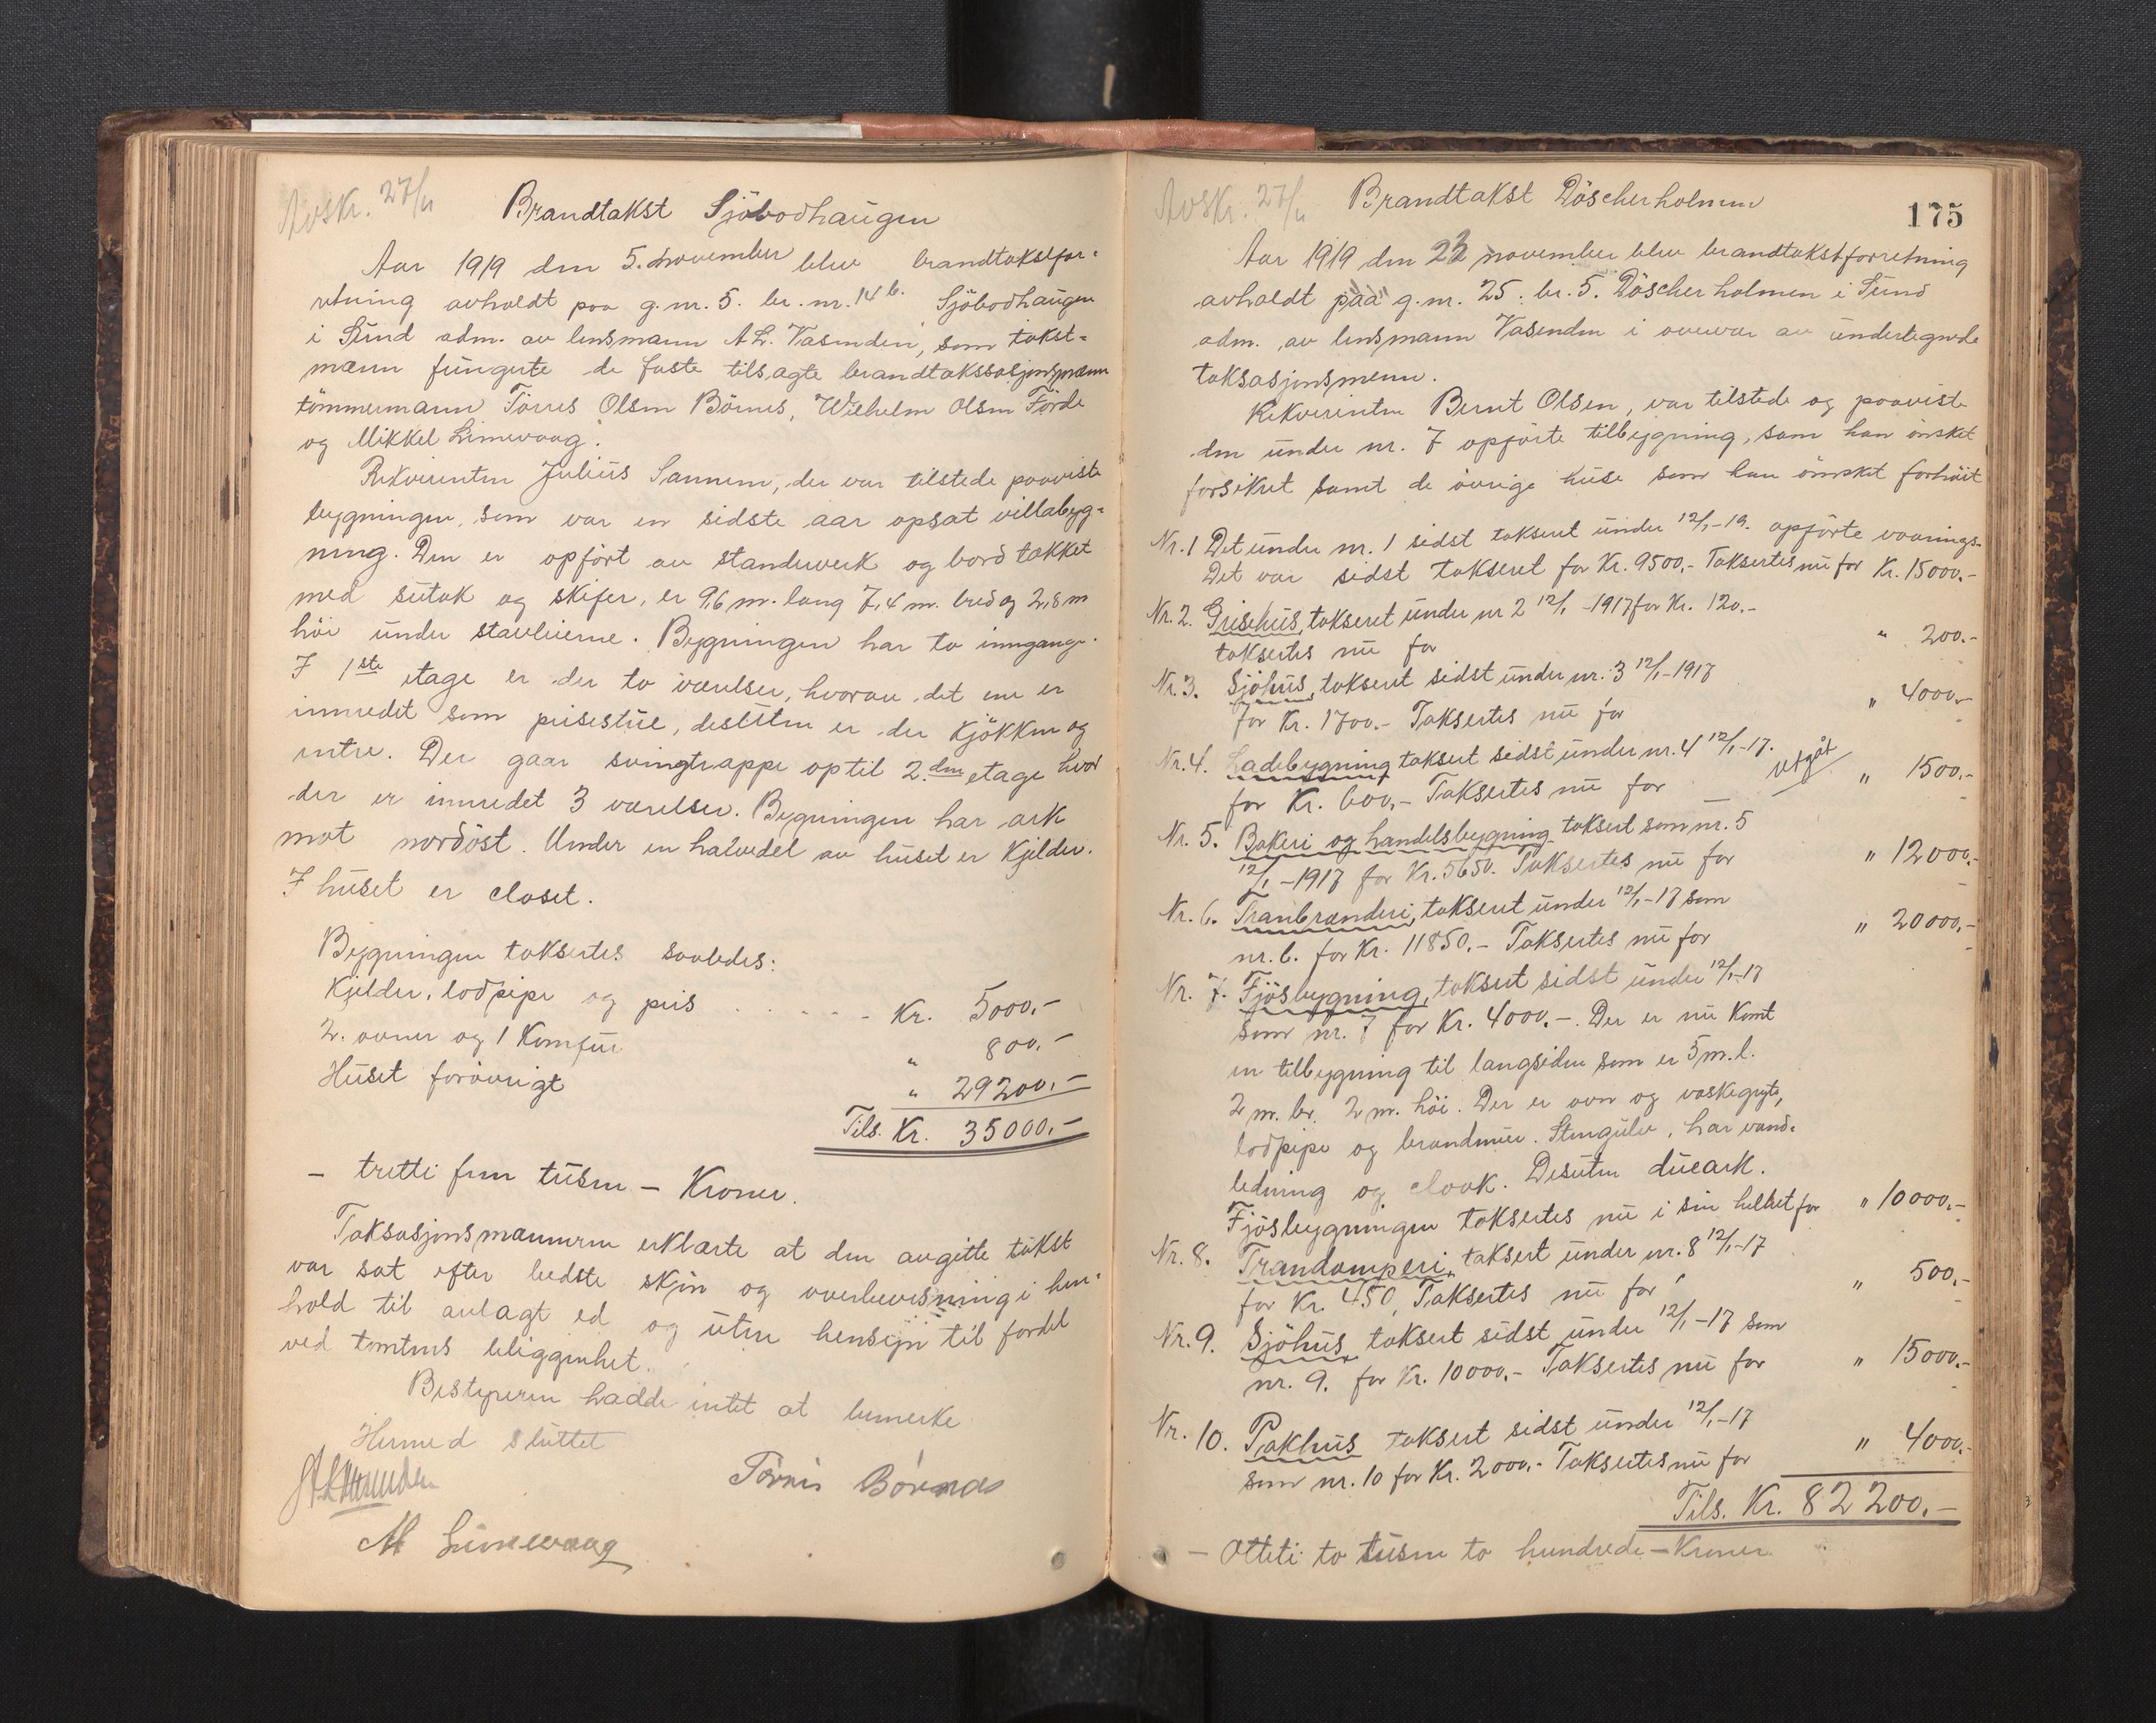 Avskr. 27/11 Brandtakst Sjöbodhaugen
Aar 1919 den 5. november blev brandtakstfor-
retning avholdt paa g.nr. 5. br.nr. 14 b. Sjöbodhaugen
i Sund adm. av lensmann A.L. Vasenden, som takst-
mænn fungerte de faste tilsagte brandtakssasjonsmænn
tömmermann Törres Olsen Börnes, Wilhelm Olsen Förde
og Mikkel Limevaag.
Rekvirenten Julius Sannem, der var tilstede paaviste
bygningen, som var en sidste aar opsat villabyg-
ning. Den er opfört av standerverk og bord takket
med sutak og skifer, er 9,6 m. lang 7,4 m. bred og 2,8 m
höi under stavleierne. Bygningen har to innganger.
I 1ste etage er der to værelser, hvorav det ene er
innredet som peisestue, desuten er der kjökken og
entre. Der gaar svingtrappe op til 2.den etage hvor
der er innredet 3 værelser. Bygningen har ark
mot nordöst. Under en halvedel av huset er kjelder.
I huset er closet.
Bygningen taksertes saaledes:
Kjelder, lodpipe og peis . . . . - Kr. 5000.-
2. ovner og 1 Komfur " 800.-
Huset forövrigt " 29200.-
Tils. Kr. 35000.-
- tretti fem tusen - Kroner.
Taksasjonsmænnerne erklærte at den avgitte takst
var sat efter bedste skjön og overbevisning i hen-
hold til avlagt ed og uten hensyn til fordel
ved tomtens beliggenhet.
Bestyreren hadde intet at bemerke
Hermed sluttet
A L Vasenden Törris Börnes
M Limevaag

Avskr. 27/11 Brandtakst Döscherholmen
175
Aar 1919 den 22 november blev brandtakstforretning
avholdt paa g.nr. 25. br. 5. Döscherholmen i Sund
adm. av lensmann Vasenden i overvær av undertegnede
taksasjonsmenn.
Rekvirenten Bernt Olsen, var tilstede og paaviste
den under nr. 7 opförte tilbygning, som han önsket
forsikret samt de övrige huse som han önsket forhöit
Nr. 1 Det under nr. 1 sidst taksert under 12/1-19. opförte vaanings-
Det var sidst taksert for Kr. 9500.- Taksertes nu for Kr. 15000.-
Nr. 2. Grisehus, taksert under nr 2 12/1-1917 for Kr. 120.-
taksertes nu for " 200.-
Nr. 3. Sjöhus, taksert sidst under nr. 3 12/1-1917
for Kr. 1700.- Taksertes nu for " 4000.-
Nr. 4. Ladebygning taksert sidst under nr. 4 12/1-17. utgåt
for Kr. 600.- Taksertes nu for " 1500.-
Nr. 5. Bakeri og handelsbygning taksert som nr. 5
12/1-1917 for Kr. 5650. Taksertes nu for " 12000.-
Nr. 6. Tranbrænderi, taksert under 12/1-17 som
nr. 6. for Kr. 11850.- Taksertes nu for " 20000.-
Nr. 7. Fjösbygning, taksert sidst under 12/1-17
som nr. 7 for Kr. 4000.-. Der er nu komt
en tilbygning til langsiden som er 5 m. l.
2 m. br. 2 m. höi. Der er ovn og vaskegryte,
lodpipe og brandmur. Stengulv, har vand-
ledning og cloak. Desuten dueark.
Fjösbygningen taksertes nu i sin helhet for " 10000.-
Nr. 8. Trandamperi, taksert under nr. 8 12/1-17
for Kr. 450, Taksertes nu for " 500.-
Nr. 9. Sjöhus taksert sidst under 12/1-17 som
nr. 9. for Kr. 10000.- Taksertes nu for " 15000.-
Nr. 10. Pakhus taksert sidst under 12/1-17
som nr. 10 for Kr. 2000.- Taksertes nu for " 4000.-
Tils. Kr. 82200.-
- Otteti to tusen to hundrede - Kroner